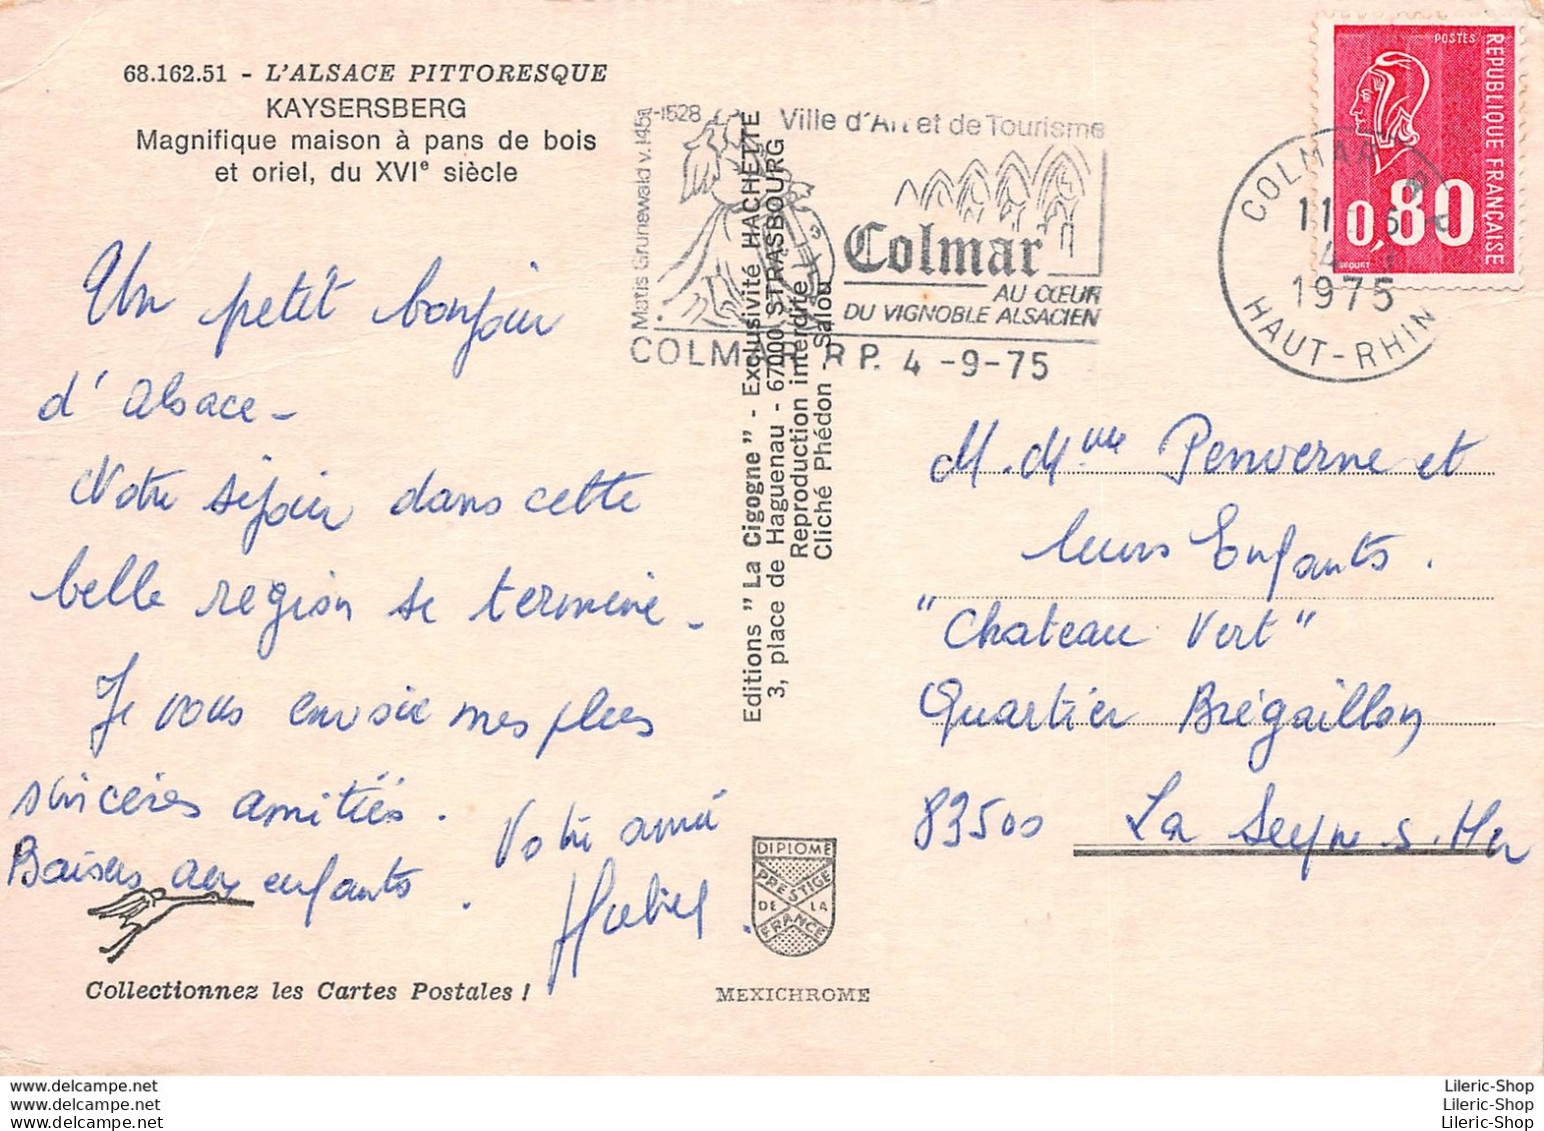 68.162.51 - L'ALSACE PITTORESQUE
KAYSERSBERG
Magnifique maison à pans de bois
et oriel, du XVIe siècle
Un petit bonjour
d'Alsace -
Notre séjour dans cette
belle region se termine -
Je vous envoie mes plus
sincères amitiés.
Baisers aux enfants.
Votre amie
Collectionnez les Cartes Postales !
Editions " La Cigogne " - Exclusivité HACHETTE
3, place de Haguenau - 67000 STRASBOURG
Reproduction interdite
Cliché Phédon - Salou
DIPLOME
PRESTIGE
DE LA
FRANCE
MEXICHROME
Matis Grunewald v. 1451-1528
Ville d'Art et de Tourisme
Colmar
AU CŒUR
DU VIGNOBLE ALSACIEN
COLMAR R P. 4 -9-75
COLMAR R P
1975
HAUT-RHIN
POSTES
REPUBLIQUE FRANÇAISE
0,80
M. Mme Penverne et
leurs Enfants.
"Chateau Vert"
Quartier Brégaillon
83500 La Seyne s. Mer
www.delcampe.net
www.delcampe.net
www.delcampe.net
Lileric-Shop
Lileric-Shop
Lileric-Shop